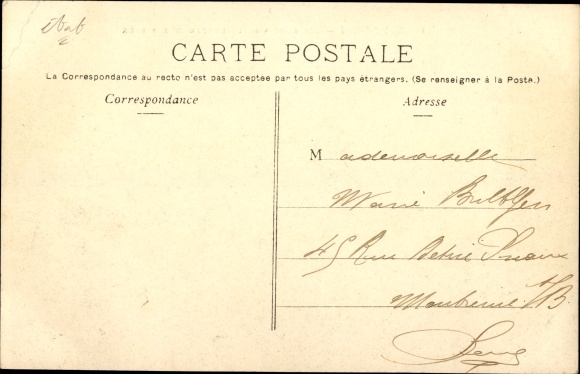 CARTE POSTALE
La Correspondance au recto n'est pas acceptée par tous les pays étrangers. (Se renseigner à la Poste.)
Correspondance
Adresse
Mademoiselle
Marie
45 Rue
Montreuil s/B.
Seine